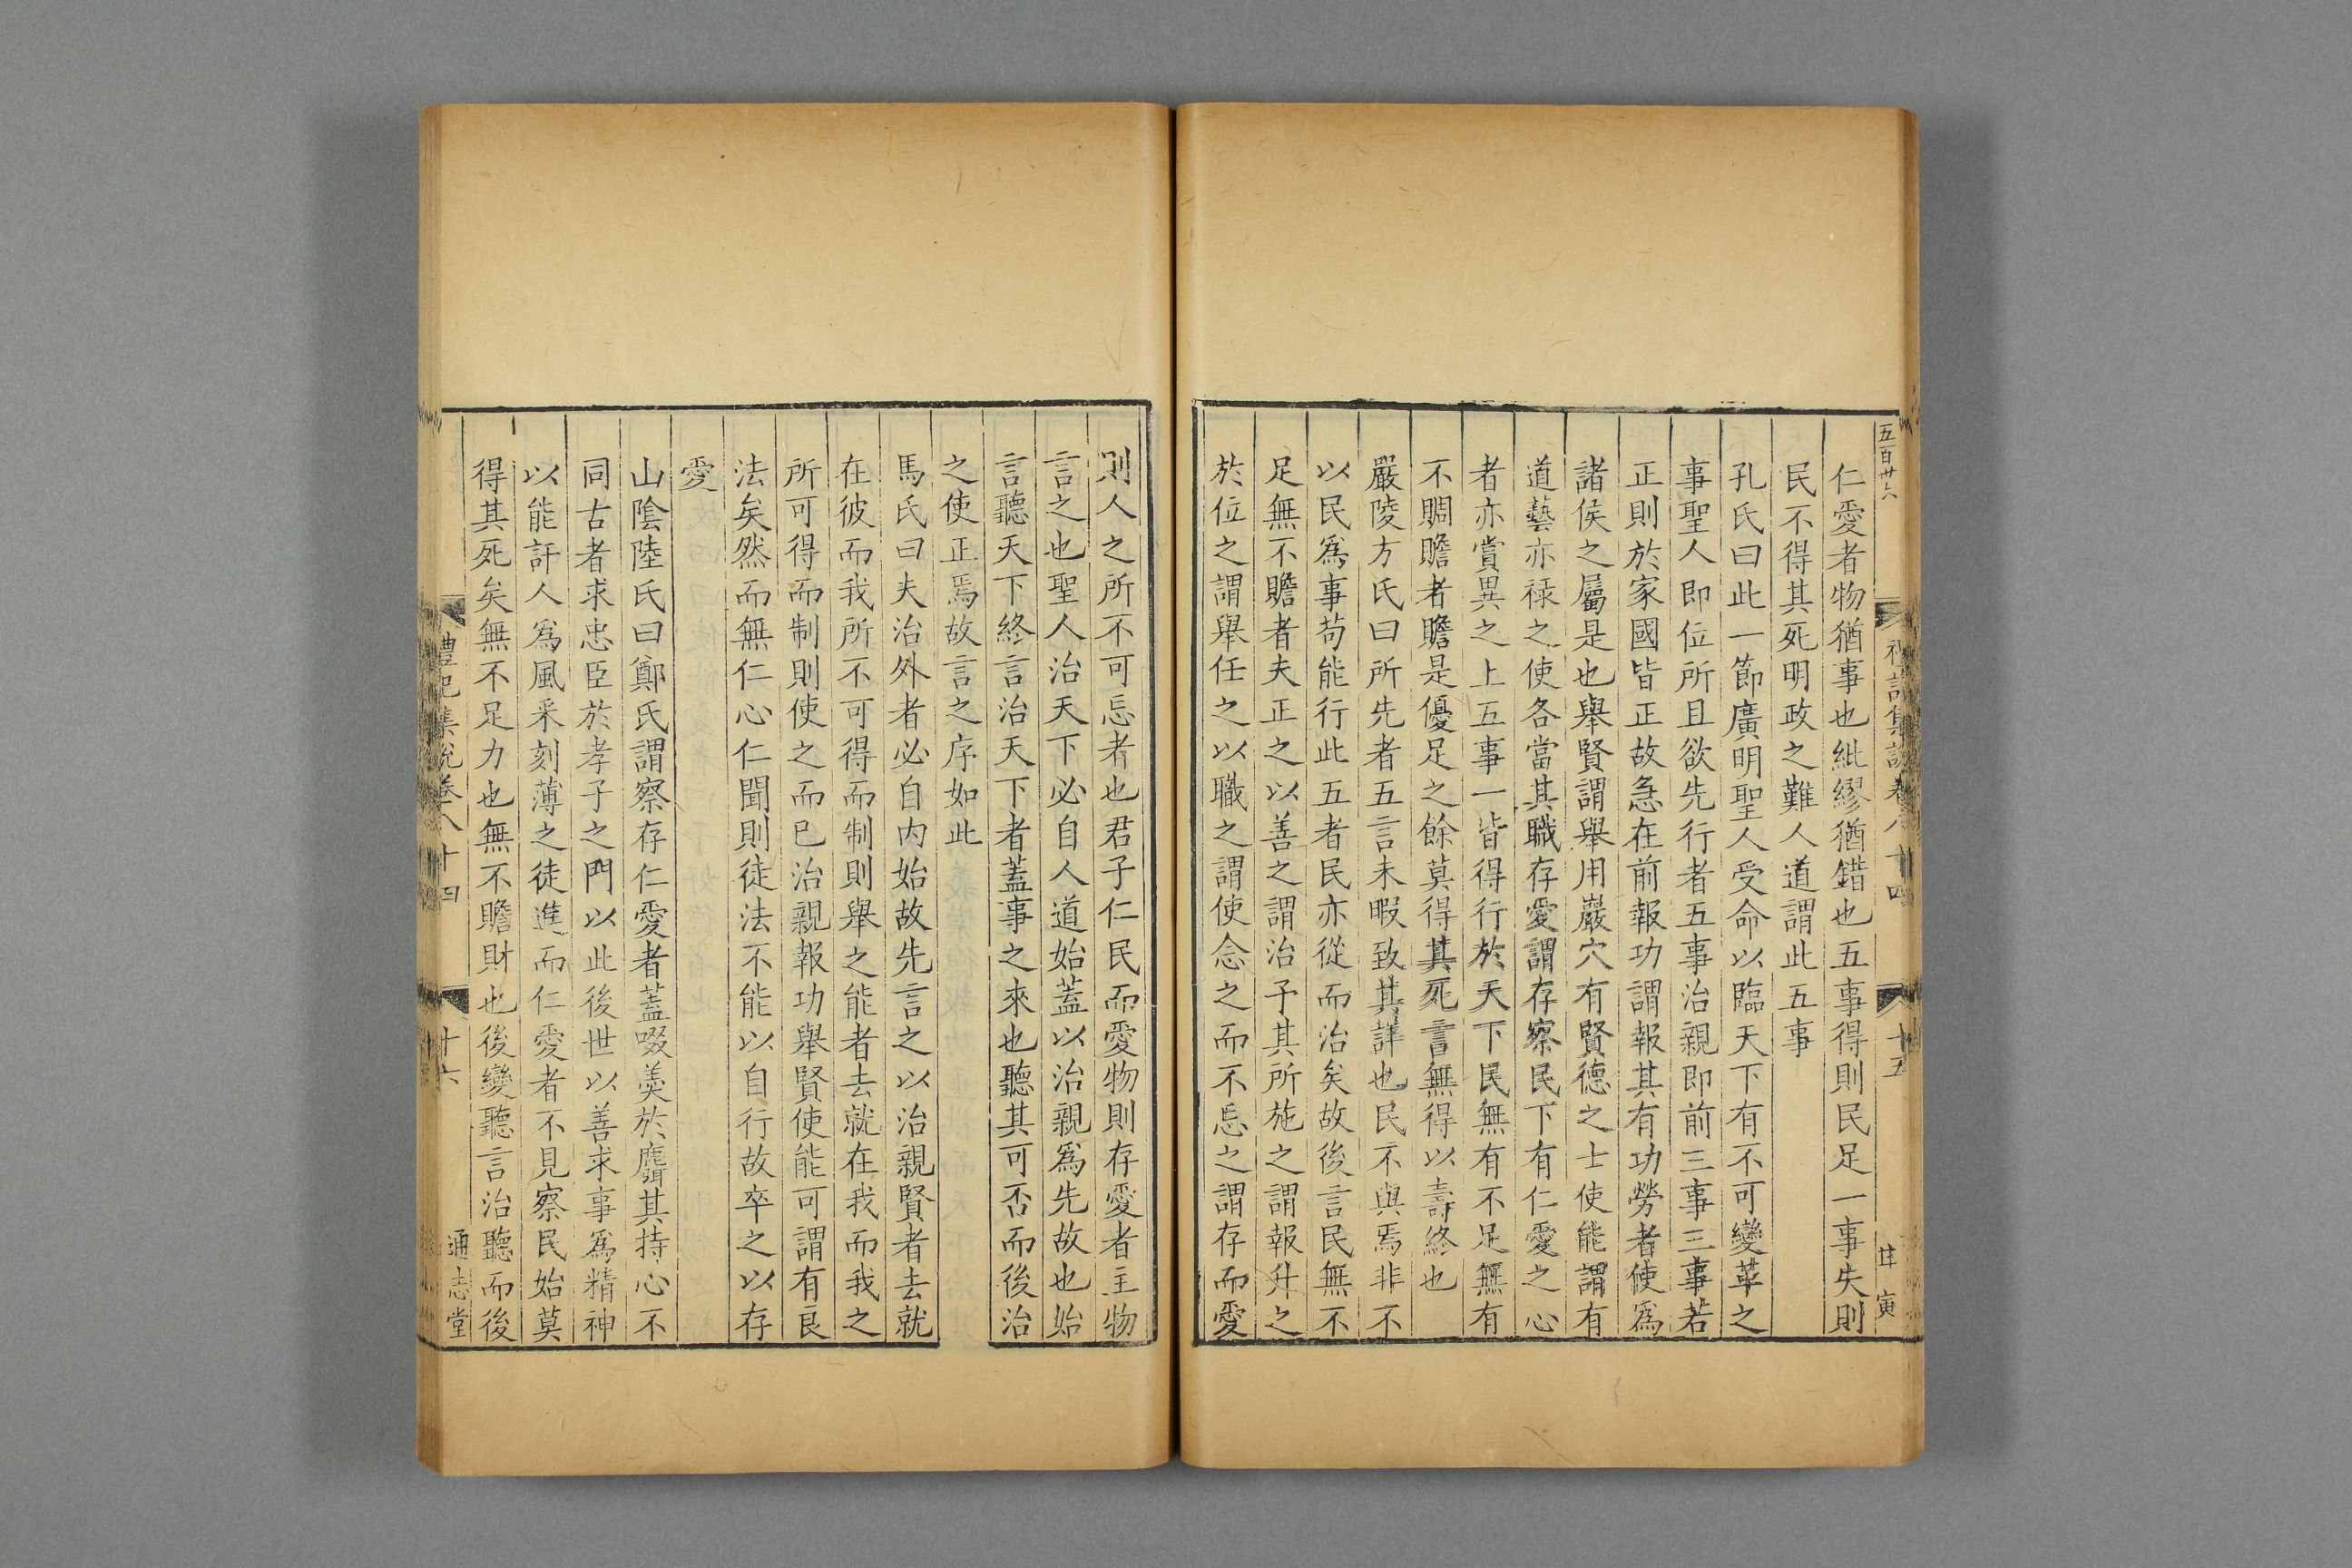 五百卅六
禮記集說卷八十四
十五
甘 寅
仁愛者物猶事也紕繆猶錯也五事得則民足一事失則
民不得其死明政之難人道謂此五事
孔氏曰此一節廣明聖人受命以臨天下有不可變革之
事聖人即位所且欲先行者五事治親即前三事三事若
正則於家國皆正故急在前報功謂報其有功勞者使為
諸侯之屬是也舉賢謂舉用巖穴有賢德之士使能謂有
道藝亦祿之使各當其職存愛謂存察民下有仁愛之心
者亦賞異之上五事一皆得行於天下民無有不足無有
不賙贍者贍是優足之餘莫得其死言無得以壽終也
嚴陵方氏曰所先者五言未暇致其詳也民不與焉非不
以民為事苟能行此五者民亦從而治矣故後言民無不
足無不贍者夫正之以善之謂治予其所施之謂報升之
於位之謂舉任之以職之謂使念之而不忘之謂存而愛
則人之所不可忘者也君子仁民而愛物則存愛者主物
言之也聖人治天下必自人道始蓋以治親為先故也始
言聽天下終言治天下者蓋事之來也聽其可否而後治
之使正焉故言之序如此
馬氏曰夫治外者必自内始故先言之以治親賢者去就
在彼而我所不可得而制則舉之能者去就在我而我之
所可得而制則使之而已治親報功舉賢使能可謂有良
法矣然而無仁心仁聞則徒法不能以自行故卒之以存
愛
山陰陸氏曰鄭氏謂察存仁愛者蓋啜羹於麛其持心不
同古者求忠臣於孝子之門以此後世以善求事為精神
以能訐人為風采刻薄之徒進而仁愛者不見察民始莫
得其死矣無不足力也無不贍財也後變聽言治聽而後
禮記集說卷八十四
十六
通志堂